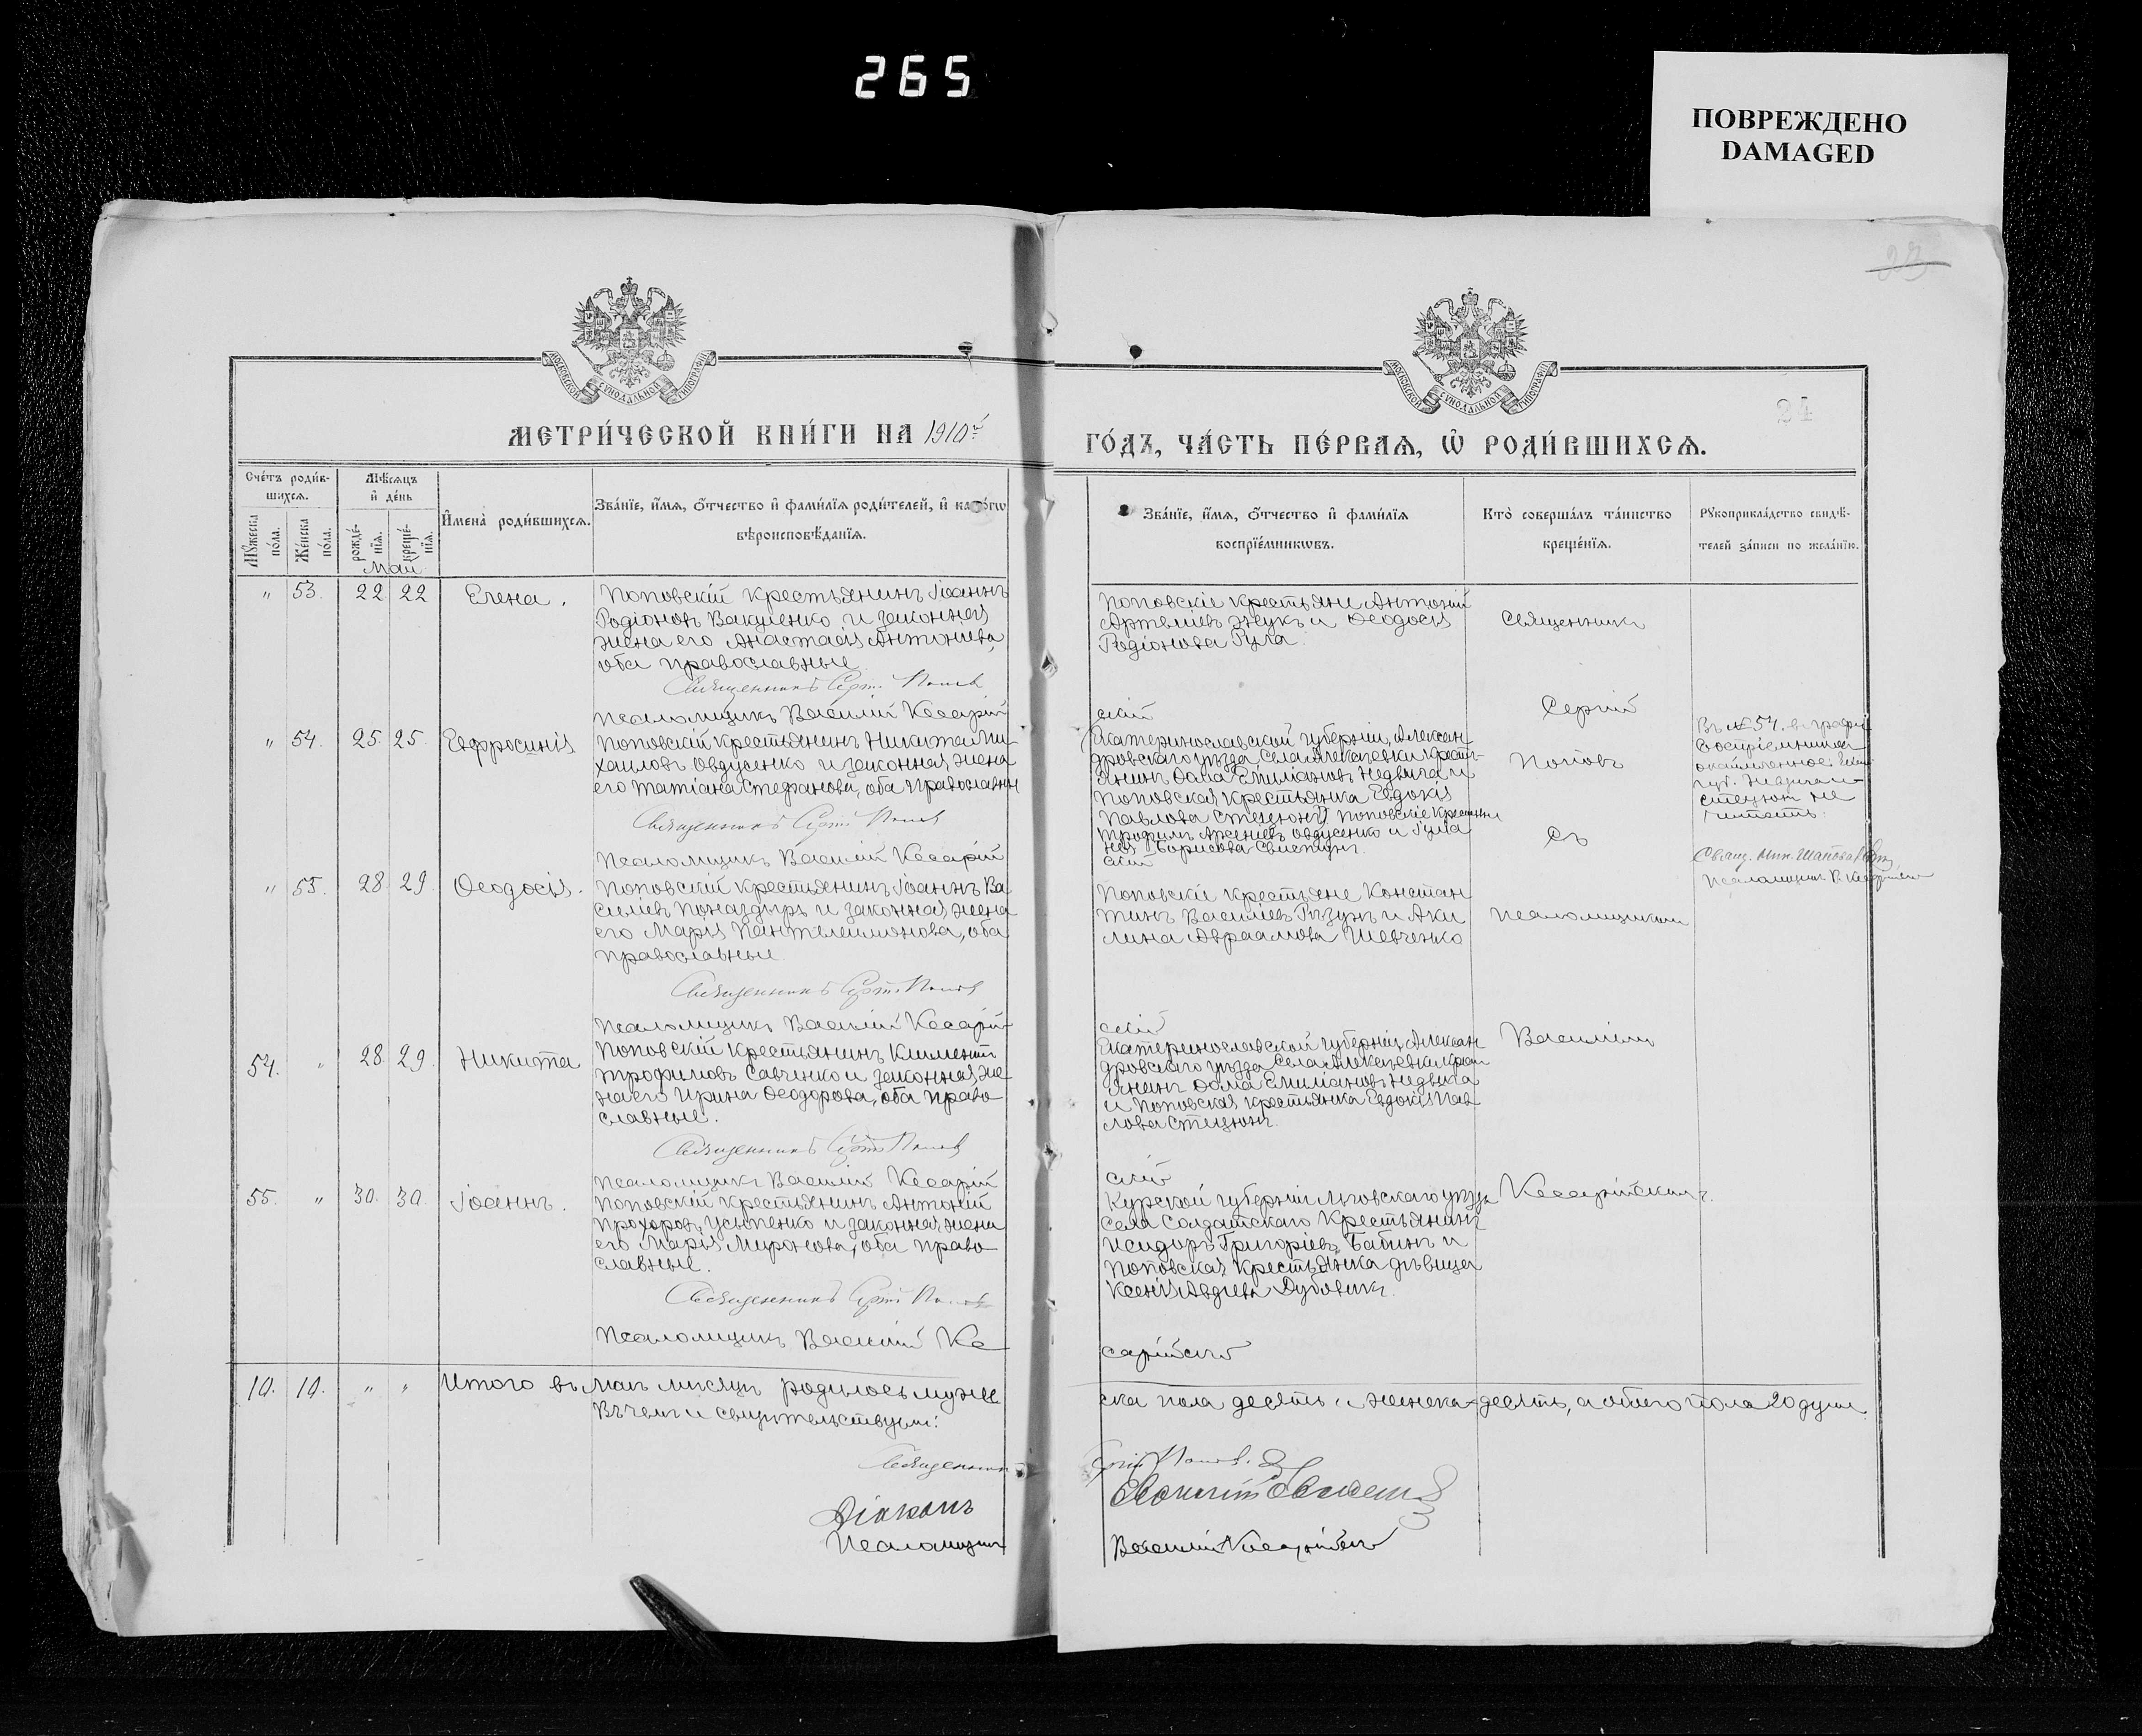 265
ПОВРЕЖДЕНО
DAMAGED
23
24
МОСКОВСКОЙ СѴНОДАЛЬНОЙ ТИПОГРАФІИ
МОСКОВСКОЙ СѴНОДАЛЬНОЙ ТИПОГРАФІИ
МЕТРИ́ЧЕСКОЙ КНИ́ГИ НА 1910й
ГО́ДЪ, ЧА́СТЬ ПЕ́РВАѦ, Ѡ҆ РОДИ́ВШИХСѦ.
Сче́тъ роди́в-
шихсѧ.
Мꙋ́жеска
по́ла.
Же́нска
по́ла.
Мѣ́сѧцъ
и҆ де́нь
рожде́-
нїѧ.
креще́-
нїѧ.
Май
И҆мена̀ роди́вшихсѧ.
Зва́нїе, и҆́мѧ, ѻ҆́тчество и҆ фами́лїѧ роди́телей, и҆ како́гѡ
вѣроисповѣ́данїѧ.
Зва́нїе, и҆́мѧ, ѻ҆́тчество и҆ фами́лїѧ
воспрїе́мникѡвъ.
Кто̀ соверша́лъ та́инство
креще́нїѧ.
Рꙋкоприкла́дство свидѣ́-
телей за́писи по жела́нїю.
" 53. 22 22 Елена.
Поповскій крестьянинъ Іоаннъ
Родіоновъ Вакуленко и законная
жена его Анастасія Антоніева,
оба православные.
Священникъ Сергій Поповъ
Псаломщикъ Василій Кесарій
Поповскіе крестьяне Антоній
Артеміевъ Жукъ и Ѳеодосія
Родіонова Гула.
скій
Священникъ
Сергій
Поповъ
Съ
псаломщикомъ
Василіемъ
Кесарійскимъ.
" 54. 25. 25. Евфросинія
Поповскій крестьянинъ Никита Ми-
хаиловъ Овдусенко и законная жена
его Татіана Стефанова, оба православны
Священникъ Сергій Поповъ
Псаломщикъ Василій Кесарій
Екатеринославской губерніи, Алексан-
дровскаго уѣзда села Алексѣевки крест-
янинъ Ѳома Емиліановъ Недвига и
Поповская крестьянка Евдокія
Павлова Стецюнъ) Поповскіе крестьяне
Трофимъ Арсеніевъ Овдусенко и Гула
Борисова
скій
Въ № 54. въ графѣ
воспріемники
Екат.
губ. Недвига и
Стецюнъ не
читать.
Свящ.
Псаломщикъ В.
" 55. 28. 29. Ѳеодосія.
Поповскій крестьянинъ Іоаннъ Ва
силіевъ Поназдырь и законная жена
его Марія Пантелеимонова, оба
православные.
Священникъ Сергій Поповъ
Псаломщикъ Василій Кесарій
Поповскіе крестьяне Констан
тинъ Василіевъ Рѣзунъ и Аки
лина Авраамова Шевченко
скій
54. " 28. 29. Никита
Поповскій крестьянинъ Климентъ
Трофимовъ Савченко и законная же
на его Ирина Ѳеодорова, оба право
славные.
Священникъ Сергій Поповъ
Псаломщикъ Василій Кесарій
Екатеринославской губерніи, Алексан
дровскаго уѣзда села Алексѣевки крест
янинъ Ѳома Емиліановъ Недвига
и Поповская крестьянка Евдокія Пав
лова Стецюнъ.
скій
55. " 30. 30. Іоаннъ.
Поповскій крестьянинъ Антоній
Прохоровъ Усыпенко и законная жена
его Марія Миронова, оба право
славные.
Священникъ Сергій Поповъ
Псаломщикъ Василій Ке
Курской губерніи Льговскаго уѣзда
села Солдатскаго крестьянинъ
Исидоръ Григоріевъ Бабинъ и
Поповская крестьянка дѣвица
Ксенія Авдіева Дубовикъ.
сарійскій
10. 10. " " Итого въ маѣ мѣсяцѣ родилось муже
ска пола десять и женска десять, а обоего пола 20 душъ.
Въ чемъ и свидѣтельствуемъ:
Священникъ Сергій Поповъ.
Діаконъ
Псаломщикъ Василій Кесарійскій